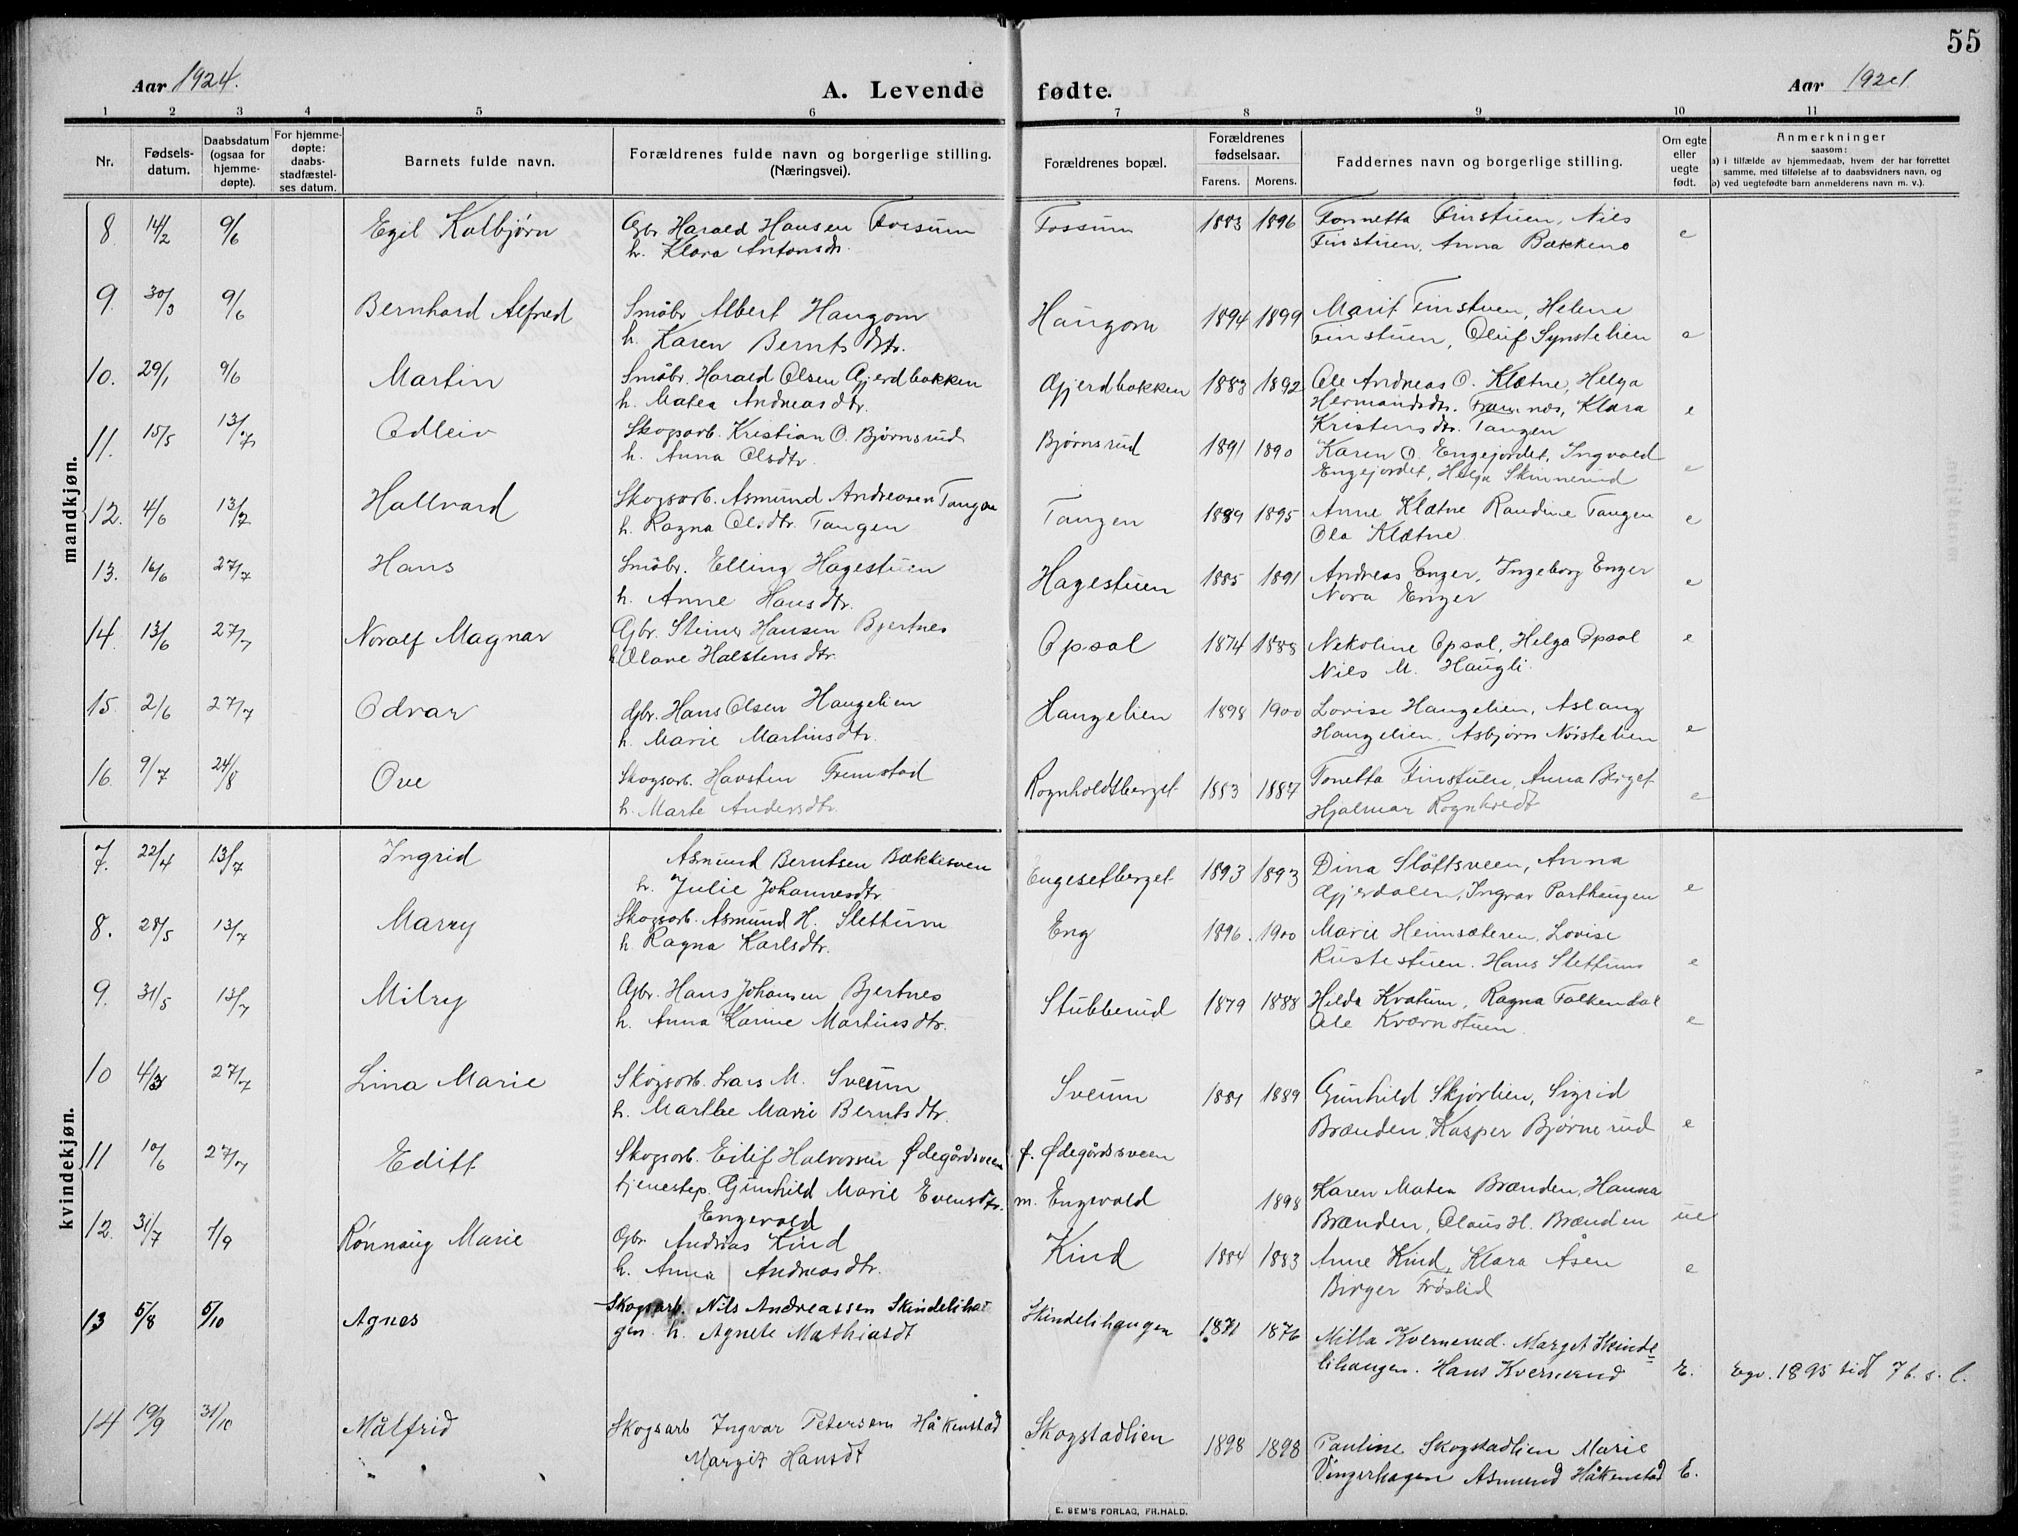 55
Aar 1924.
A. Levende fødte.
Aar 1924
1 2 3 4 5 6 7 8 9 10 11
Nr.
Fødsels-
datum.
Daabsdatum
(ogsaa for
hjemme-
døpte).
For hjemme-
døpte:
daabs-
stadfæstel-
ses datum.
Barnets fulde navn.
Forældrenes fulde navn og borgerlige stilling.
(Næringsvei).
Forældrenes bopæl.
Forældrenes
fødselsaar.
Farens. Morens.
Faddernes navn og borgerlige stilling.
Om egte
eller
uegte
født.
Anmerkninger
saasom:
a) i tilfælde av hjemmedaab, hvem der har forrettet
samme, med tilføielse af to daabsvidners navn, og
b) ved uegtefødte barn anmelderens navn m. v.).
mandkjøn.
8 14/2 9/6 Egil Kolbjørn Gbr. Harald Hansen Fossum Fossum 1883 1896 Tonnetta Finstuen, Nils
h. Klara Antonsdr. Finstuen, Anna Bækkene e
9. 30/3 9/6 Bernhard Alfred Småbr. Albert Haugom Haugom 1894 1899 Marit Finstuen, Helene
h. Karen Berntsdtr. Finstuen, Oluf Synstelien e
10. 29/1 9/6 Martin Småbr. Harald Olsen Gjerdbakken Gjerdbakken 1883 1892 Ole Andreas O. Klætne, Helga
h. Matea Andreasdtr. Hermandsdr. Framnæs, Klara e
Kristensdtr. Tangen
11. 15/5 13/7 Odleiv Skogsarb. Kristian O. Bjørnsrud Bjørnsrud 1891 1890 Karen O. Engejordet, Ingvald
h. Anna Olsdtr. Engejordet, Helga Skinnerud e
12. 4/6 13/7 Hallvard Skogsarb. Asmund Andreasen Tangen Tangen 1889 1895 Anne Klætne Randine Tangen
h. Ragna Olsdtr. Tangen Ola Klætne e
13. 16/6 27/7 Hans Småbr. Elling Hagestuen Hagestuen 1885 1891 Andreas Enger, Ingeborg Enger
h. Anne Hansdtr. Nora Enger e
14. 13/6 27/7 Noralf Magnar Gbr. Steiner Hansen Bjertnes Opsal 1874 1888 Nekoline Opsal, Helga Opsal e
h. Olave Halstensdtr. Niels M. Haugli
15. 2/6 27/7 Odvar Gbr. Hans Olsen Haugelien Haugelien 1898 1900 Lovise Haugelien, Aslaug
h. Marie Martinsdtr. Haugelien, Asbjørn Nørstelien e
16. 9/7 24/8 Ove Skogsarb. Havsten Grimstad Rognholdtberget 1883 1887 Tonetta Finstuen, Anna Berget
h. Marte Andersdtr. Hjalmar Rognholdt e
kvindekjøn.
7. 22/4 13/7 Ingrid Asmund Berntsen Bækkesveen Engesetberget 1893 1893 Dina Slåttsveen, Anna
h. Julie Johannesdtr Gjerdalen, Ingvar Parthaugen e
8. 28/5 13/7 Marry Skogsarb. Asmund H. Slettum Eng 1896. 1900 Marie Hemsæteren, Lovise
h. Ragna Karlsdtr. Rustestuen. Hans Slettum e
9. 31/5 13/7 Milry Gbr. Hans Johansen Bjertnes Stubberud 1879 1888 Hilda Kvatum, Ragna Falkendal
h. Anna Karine Martinsdtr. Ole Kværnstuen. e
10 4/3 27/7 Lina Marie Skogsarb. Lars M. Sveum Sveum 1881 1889 Gunhild Skjørlien, Sigrid
h. Marthe Marie Berntsdtr. Brænden, Kasper Bjørnerud e
11 10/6 27/7 Editt Skogsarb. Eilif Halvorsen Ødegårdsveen f. Ødegårdssveen
tjenestep. Gunhild Marie Evensdtr. m. Engevold 1898 Karen Matea Brænden, Hanna
Engevold Brænden, Olaus H. Brænden ue
12. 31/7 7/9 Rønnaug Marie Gbr. Andreas Kind Kind 1884 1883 Anne Kind, Klara Åsen
h. Anna Andreasdtr. Birger Frøslid e
13 5/8 5/10 Agnes Skogsarb. Nils Andreassen Skindelihau- Skindelihaugen 1871 1876 Milla Kvernerud. Margit Skinde=
gen. h. Agnete Mathiasdt lihaugen. Hans Kvernerud E. Egv. 1895 tidl 7 b. s. l.
14 19/9 31/10 Målfrid Skogsarb Ingvar Petersen Håkenstad Skogstadlien 1898 1898 Pauline Skogstadlien Marie
Margit Hansdt Vingerhagen Asmund Håkenstad E.
E. SEM'S FORLAG, FR.HALD.